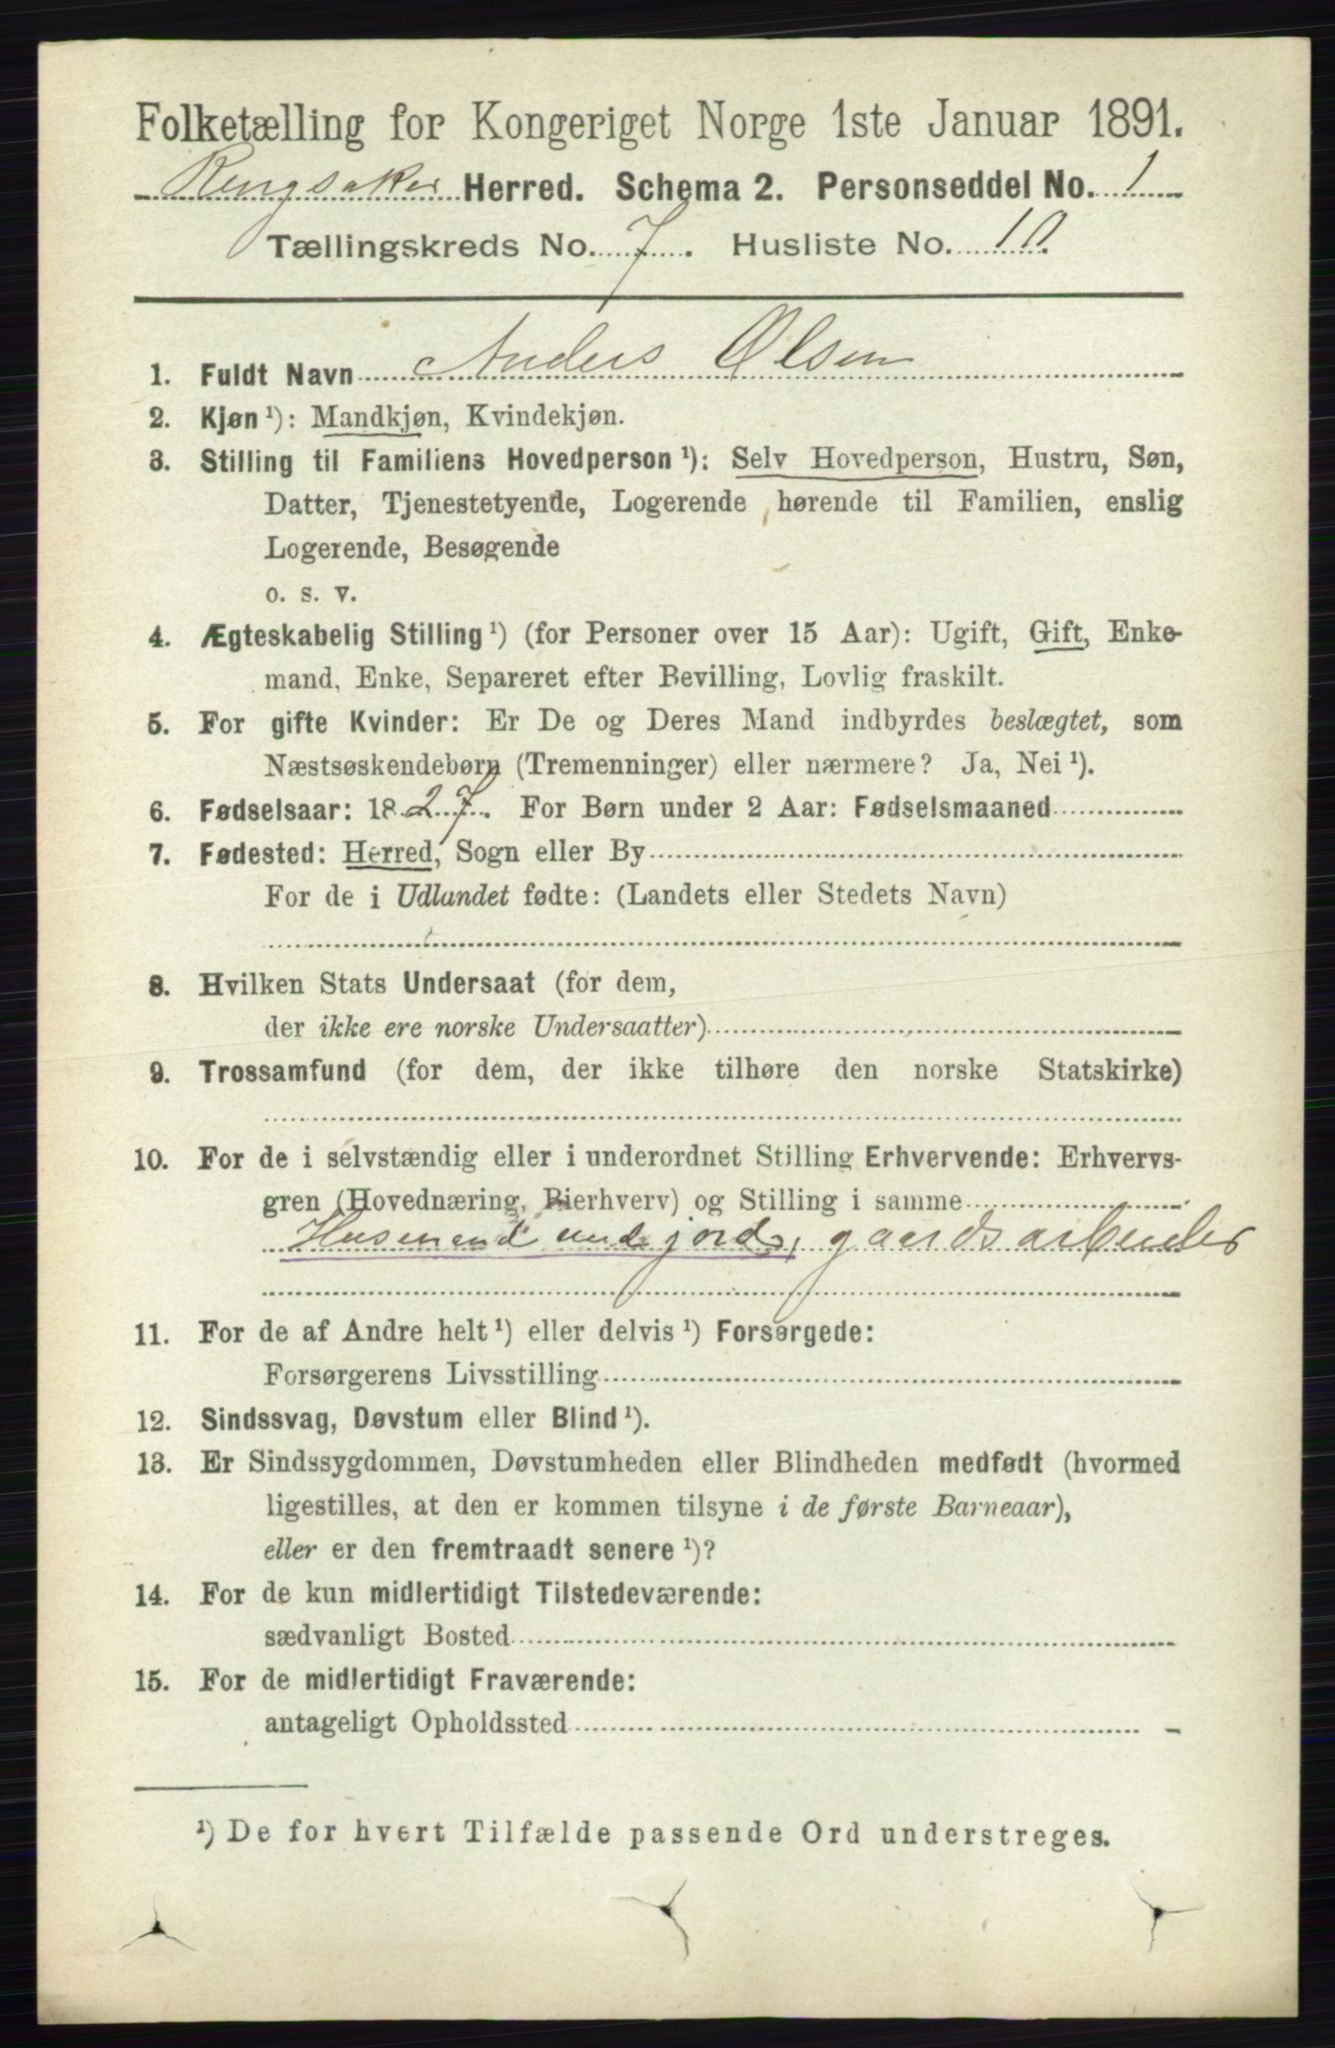 Folketælling for Kongeriget Norge 1ste Januar 1891.
Ringsaker Herred. Schema 2. Personseddel No. 1
Tællingskreds No. 7. Husliste No. 10.
1. Fuldt Navn Anders Olsen
2. Kjøn ¹): Mandkjøn, Kvindekjøn.
3. Stilling til Familiens Hovedperson ¹): Selv Hovedperson, Hustru, Søn,
Datter, Tjenestetyende, Logerende hørende til Familien, enslig
Logerende, Besøgende
o. s. v.
4. Ægteskabelig Stilling ¹) (for Personer over 15 Aar): Ugift, Gift, Enke-
mand, Enke, Separeret efter Bevilling, Lovlig fraskilt.
5. For gifte Kvinder: Er De og Deres Mand indbyrdes beslægtet, som
Næstsøskendebørn (Tremenninger) eller nærmere? Ja, Nei ¹).
6. Fødselsaar: 1827. For Børn under 2 Aar: Fødselsmaaned
7. Fødested: Herred, Sogn eller By
For de i Udlandet fødte: (Landets eller Stedets Navn)
8. Hvilken Stats Undersaat (for dem,
der ikke ere norske Undersaatter)
9. Trossamfund (for dem, der ikke tilhøre den norske Statskirke)
10. For de i selvstændig eller i underordnet Stilling Erhvervende: Erhvervs-
gren (Hovednæring, Bierhverv) og Stilling i samme
Husmand med jord, gaardsarbeider
11. For de af Andre helt ¹) eller delvis ¹) Forsørgede:
Forsørgerens Livsstilling
12. Sindssvag, Døvstum eller Blind ¹).
13. Er Sindssygdommen, Døvstumheden eller Blindheden medfødt (hvormed
ligestilles, at den er kommen tilsyne i de første Barneaar),
eller er den fremtraadt senere ¹)?
14. For de kun midlertidigt Tilstedeværende:
sædvanligt Bosted
15. For de midlertidigt Fraværende:
antageligt Opholdssted
¹) De for hvert Tilfælde passende Ord understreges.